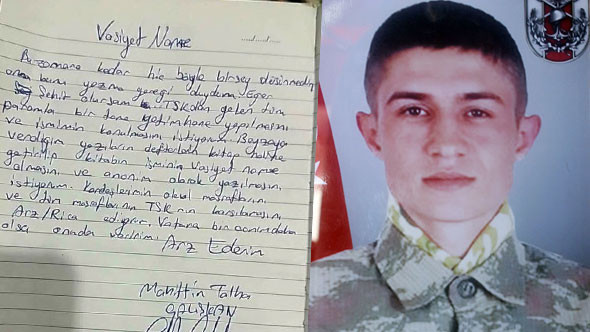 Vasiyet Name
Bu zamana kadar hiç böyle birşey düşünmedim
ama bunu yazma gereği duydum Eğer
Şehit olursam TSKdan gelen tüm
paramla bir tane yetimhane yapılmasını
ve ismimin konulmasını istiyorum. Beyzaya
verdiğim yazıların defterlerin kitap haline
getirilip kitabın isminin Vasiyet name
olmasını ve anonim olarak yazılmasını
istiyorum. Kardeşlerimin okul masraflarını
ve tüm masraflarının TSK'nın karşılamasını
Arz/Rica ediyorum. Vatana bin canım daha
olsa onada veririm. Arz Ederim
Mahittin Talha
ÇALIŞKAN